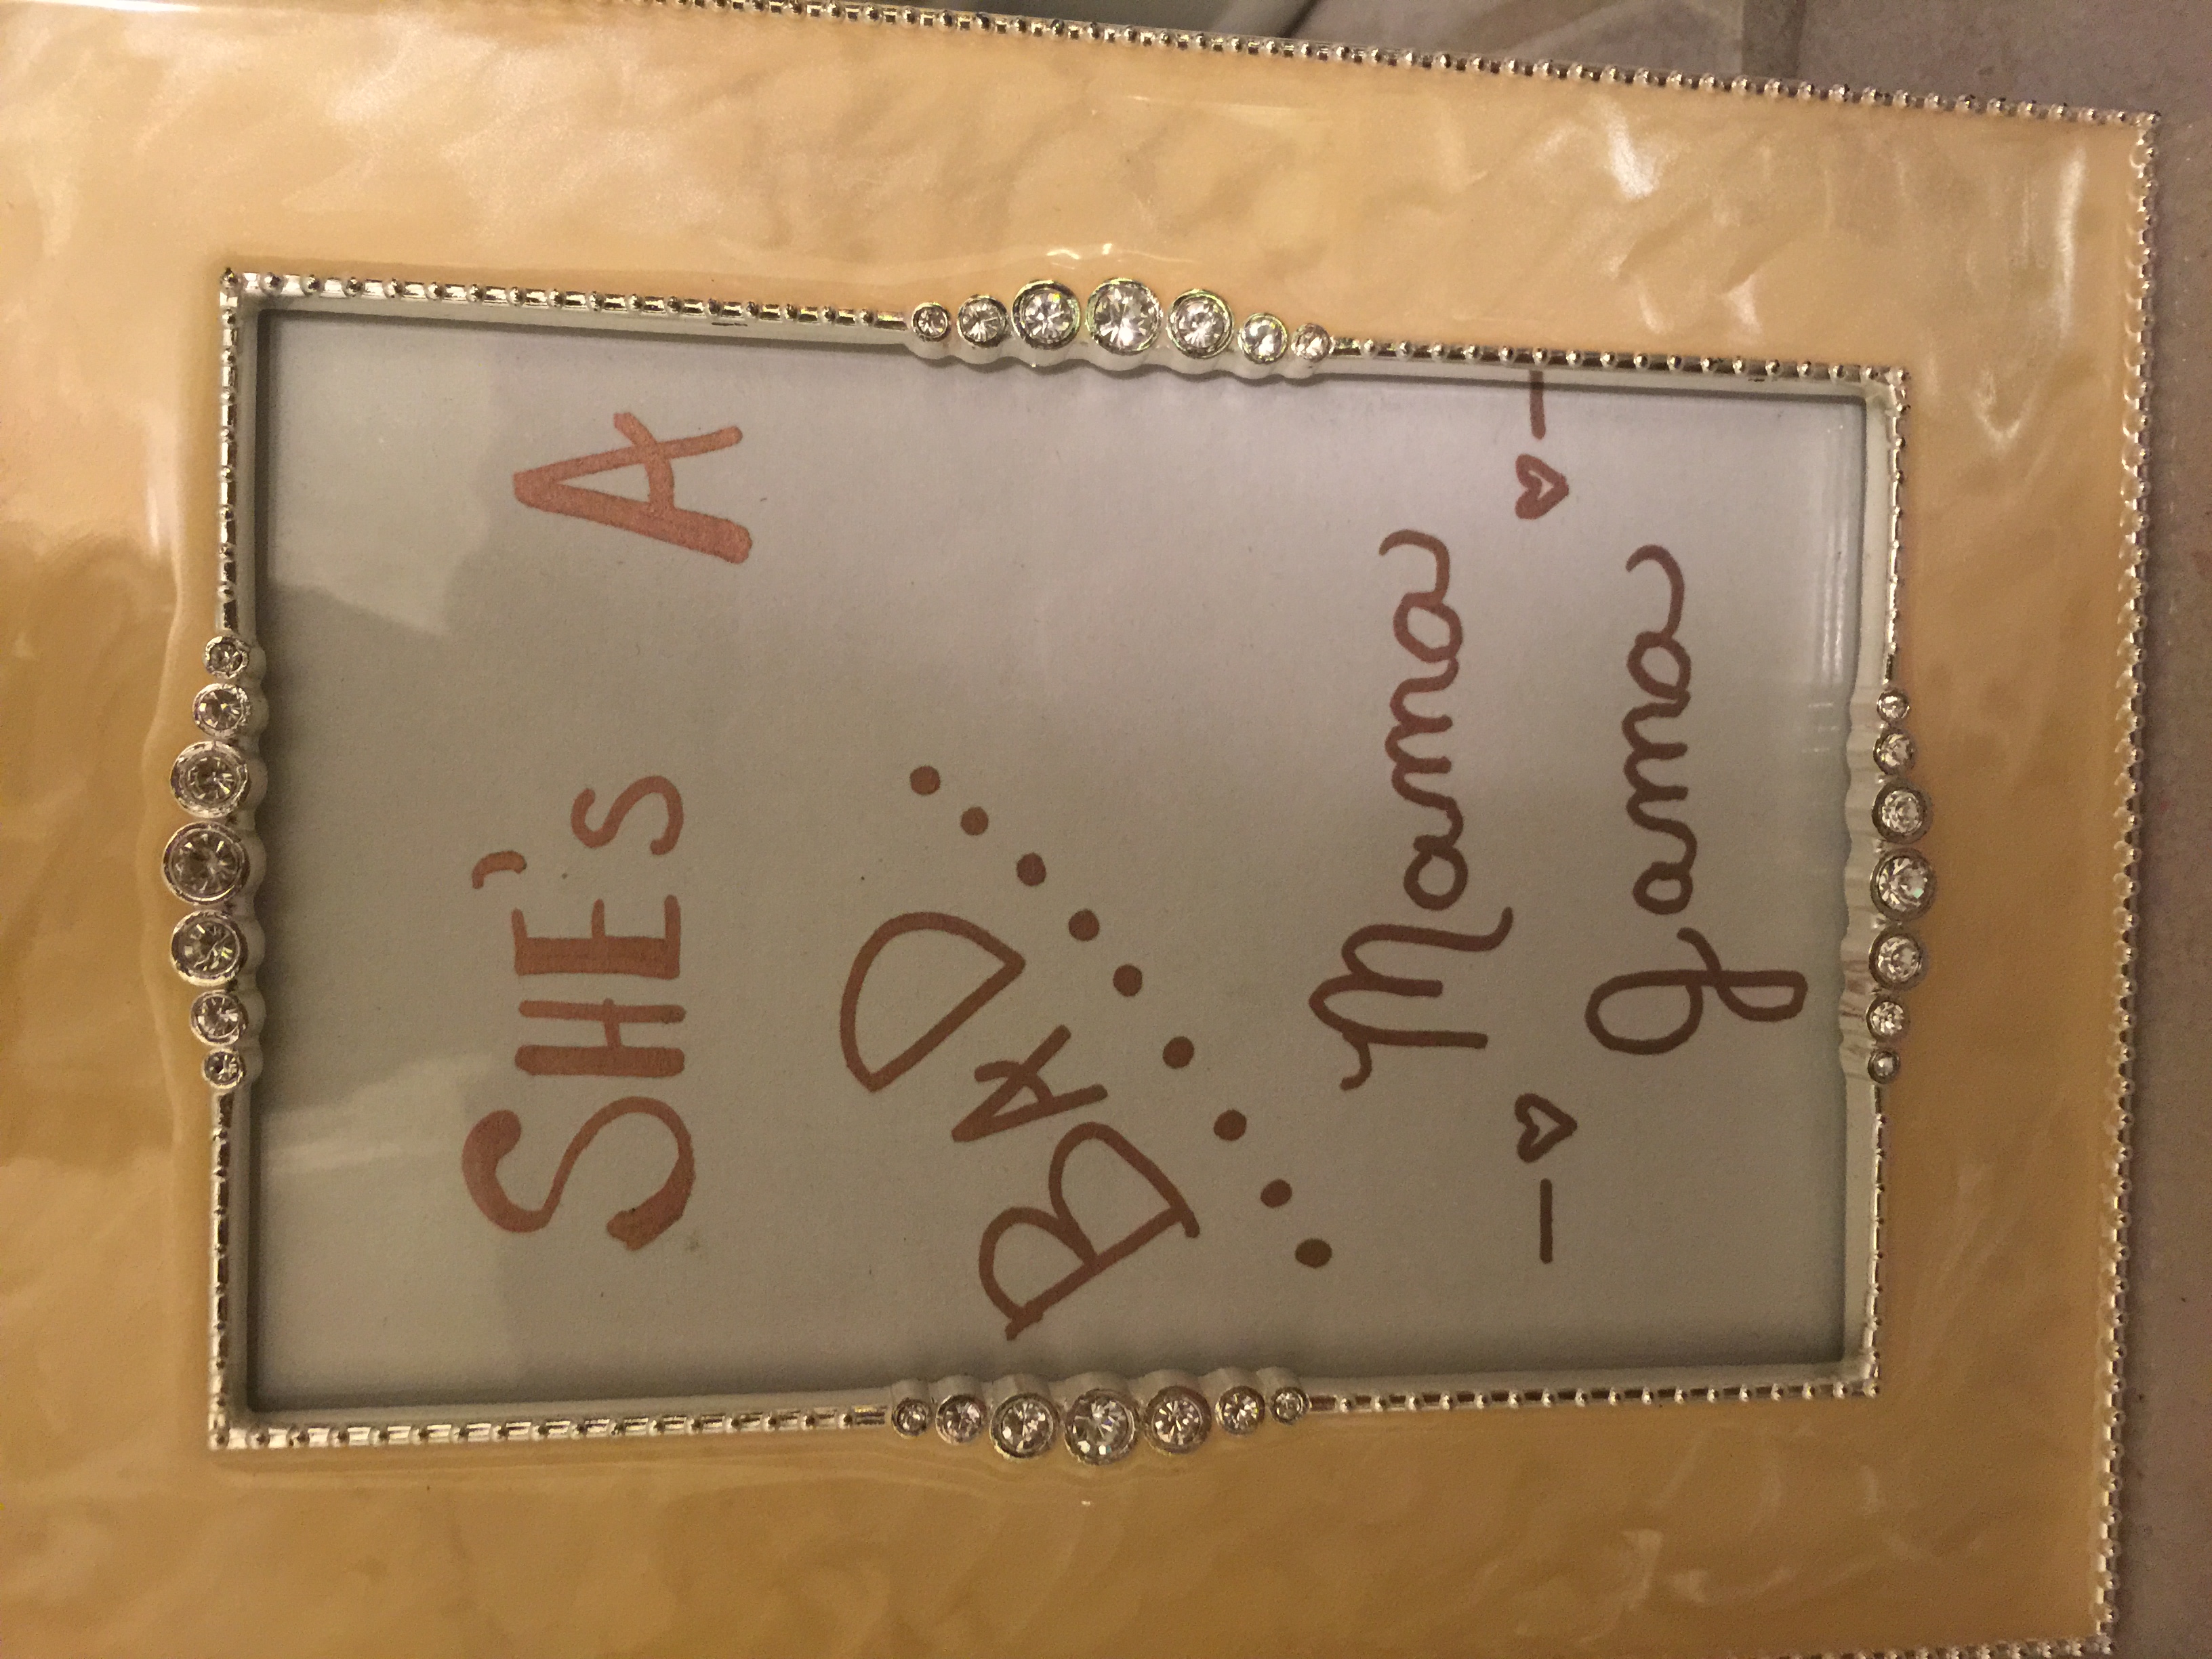 SHE's A
BAD
Mama
Jama